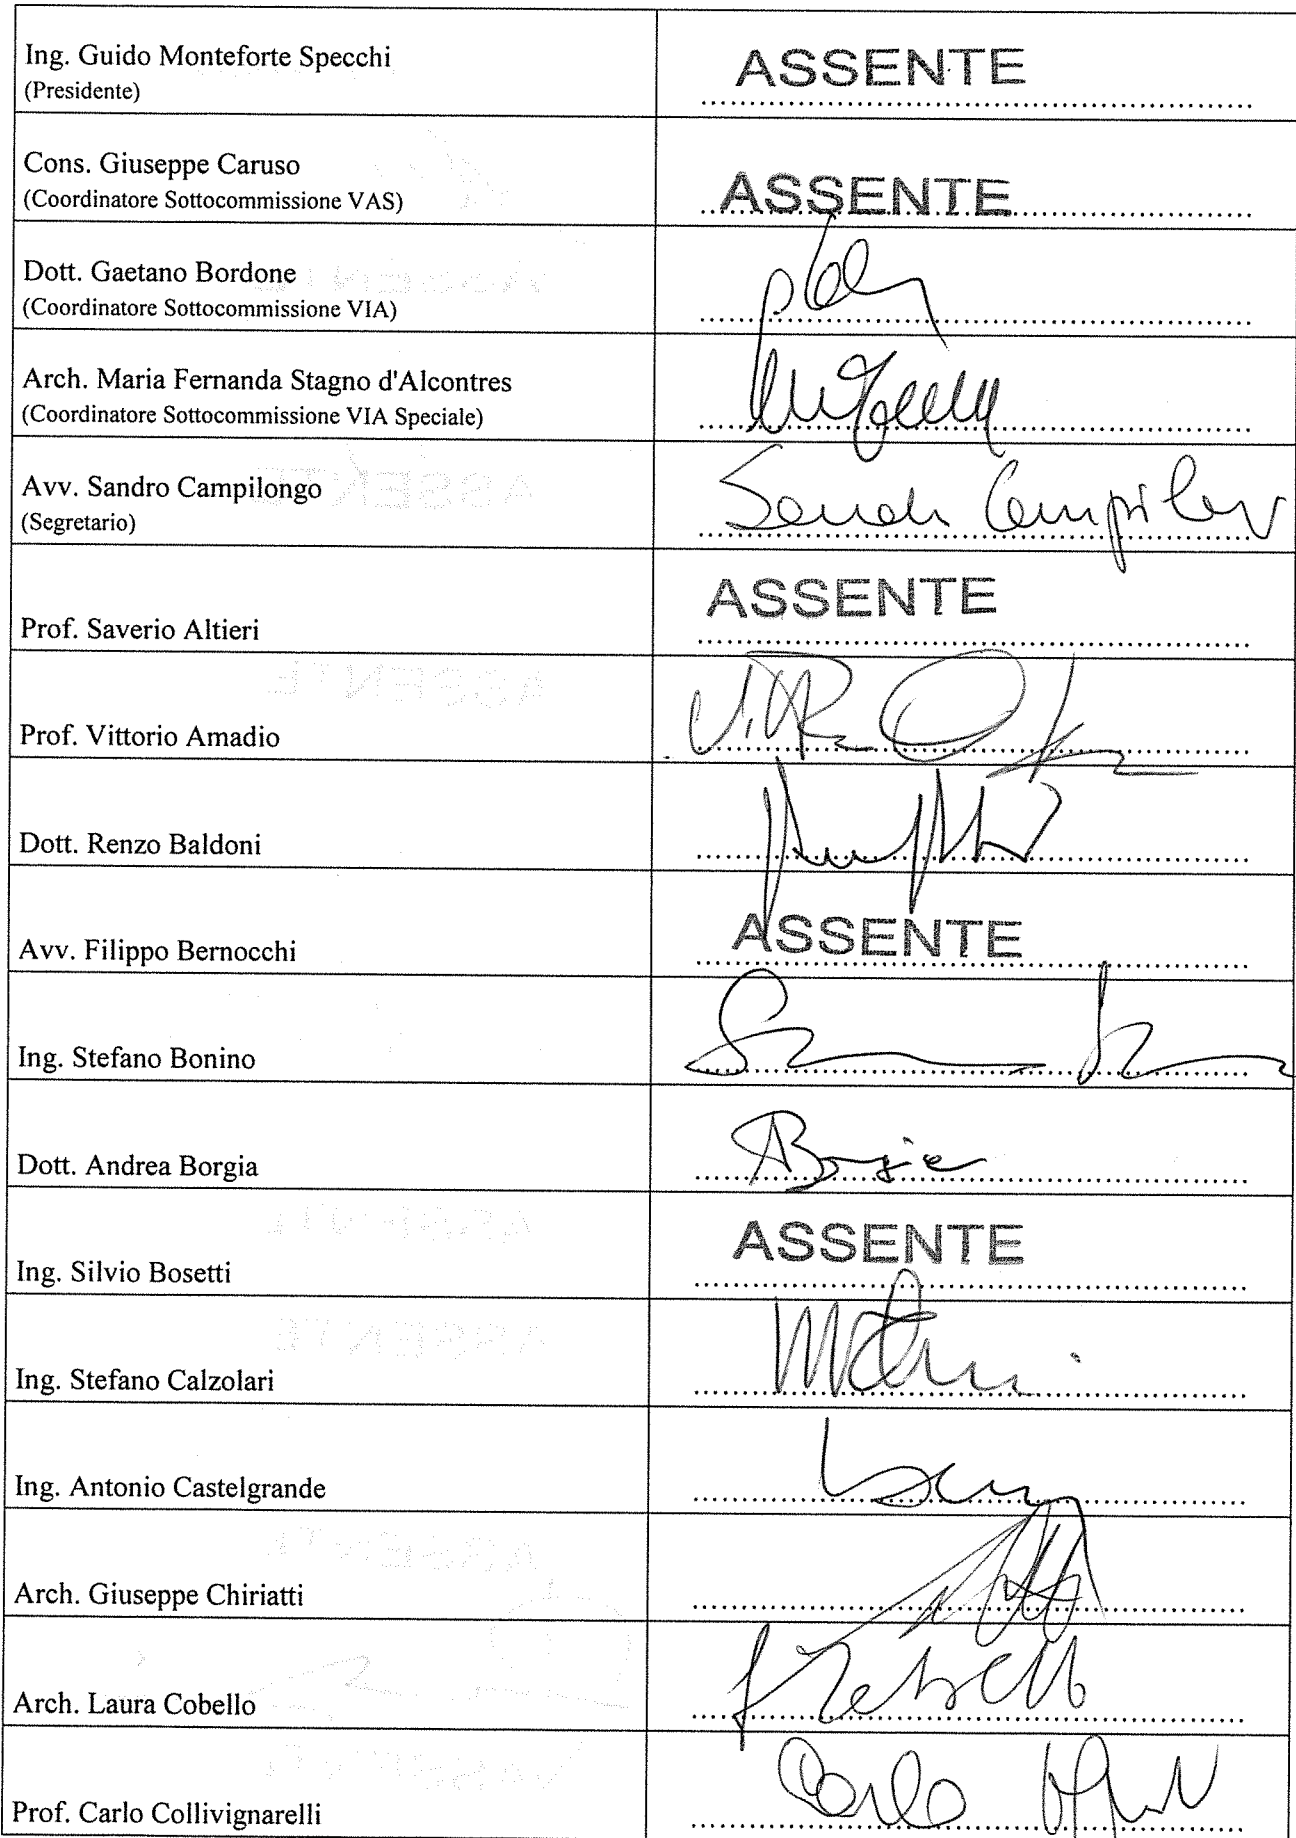 Ing. Guido Monteforte Specchi
(Presidente)
ASSENTE
Cons. Giuseppe Caruso
(Coordinatore Sottocommissione VAS)
ASSENTE
Dott. Gaetano Bordone
(Coordinatore Sottocommissione VIA)
Arch. Maria Fernanda Stagno d'Alcontres
(Coordinatore Sottocommissione VIA Speciale)
Avv. Sandro Campilongo
(Segretario)
Prof. Saverio Altieri
ASSENTE
Prof. Vittorio Amadio
Dott. Renzo Baldoni
Avv. Filippo Bernocchi
ASSENTE
Ing. Stefano Bonino
Dott. Andrea Borgia
Ing. Silvio Bosetti
ASSENTE
Ing. Stefano Calzolari
Ing. Antonio Castelgrande
Arch. Giuseppe Chiriatti
Arch. Laura Cobello
Prof. Carlo Collivignarelli
Carlo